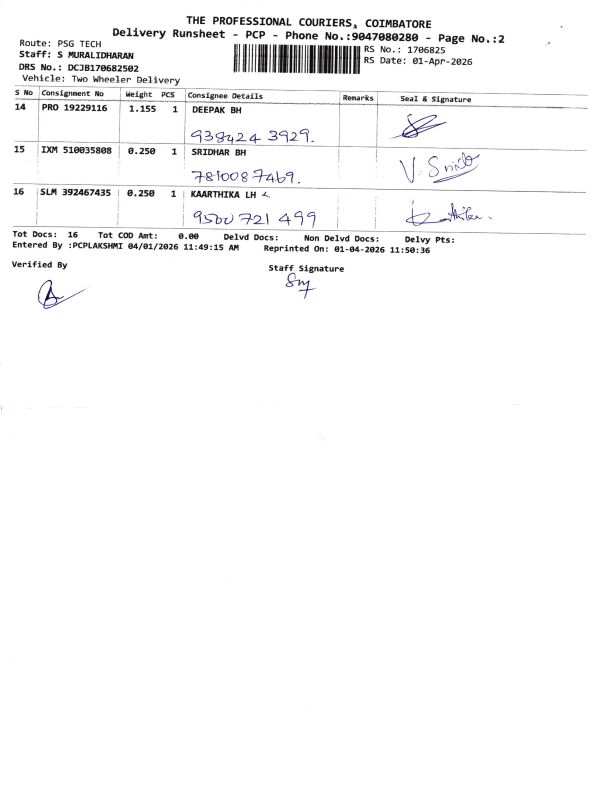 THE PROFESSIONAL COURIERS, COIMBATORE
Delivery Runsheet - PCP - Phone No.:9047080280 - Page No.:2
Route: PSG TECH
Staff: S MURALIDHARAN
DRS No.: DCJB170682502
Vehicle: Two Wheeler Delivery
RS No.: 1706825
RS Date: 01-Apr-2026
S No Consignment No Weight PCS Consignee Details Remarks Seal & Signature
14 PRO 19229116 1.155 1 DEEPAK BH
938424 3929.
15 IXM 510035808 0.250 1 SRIDHAR BH
7810087469.
16 SLM 392467435 0.250 1 KAARTHIKA LH
9500 721 499
Tot Docs: 16 Tot COD Amt: 0.00 Delvd Docs: Non Delvd Docs: Delvy Pts:
Entered By :PCPLAKSHMI 04/01/2026 11:49:15 AM Reprinted On: 01-04-2026 11:50:36
Verified By
Staff Signature